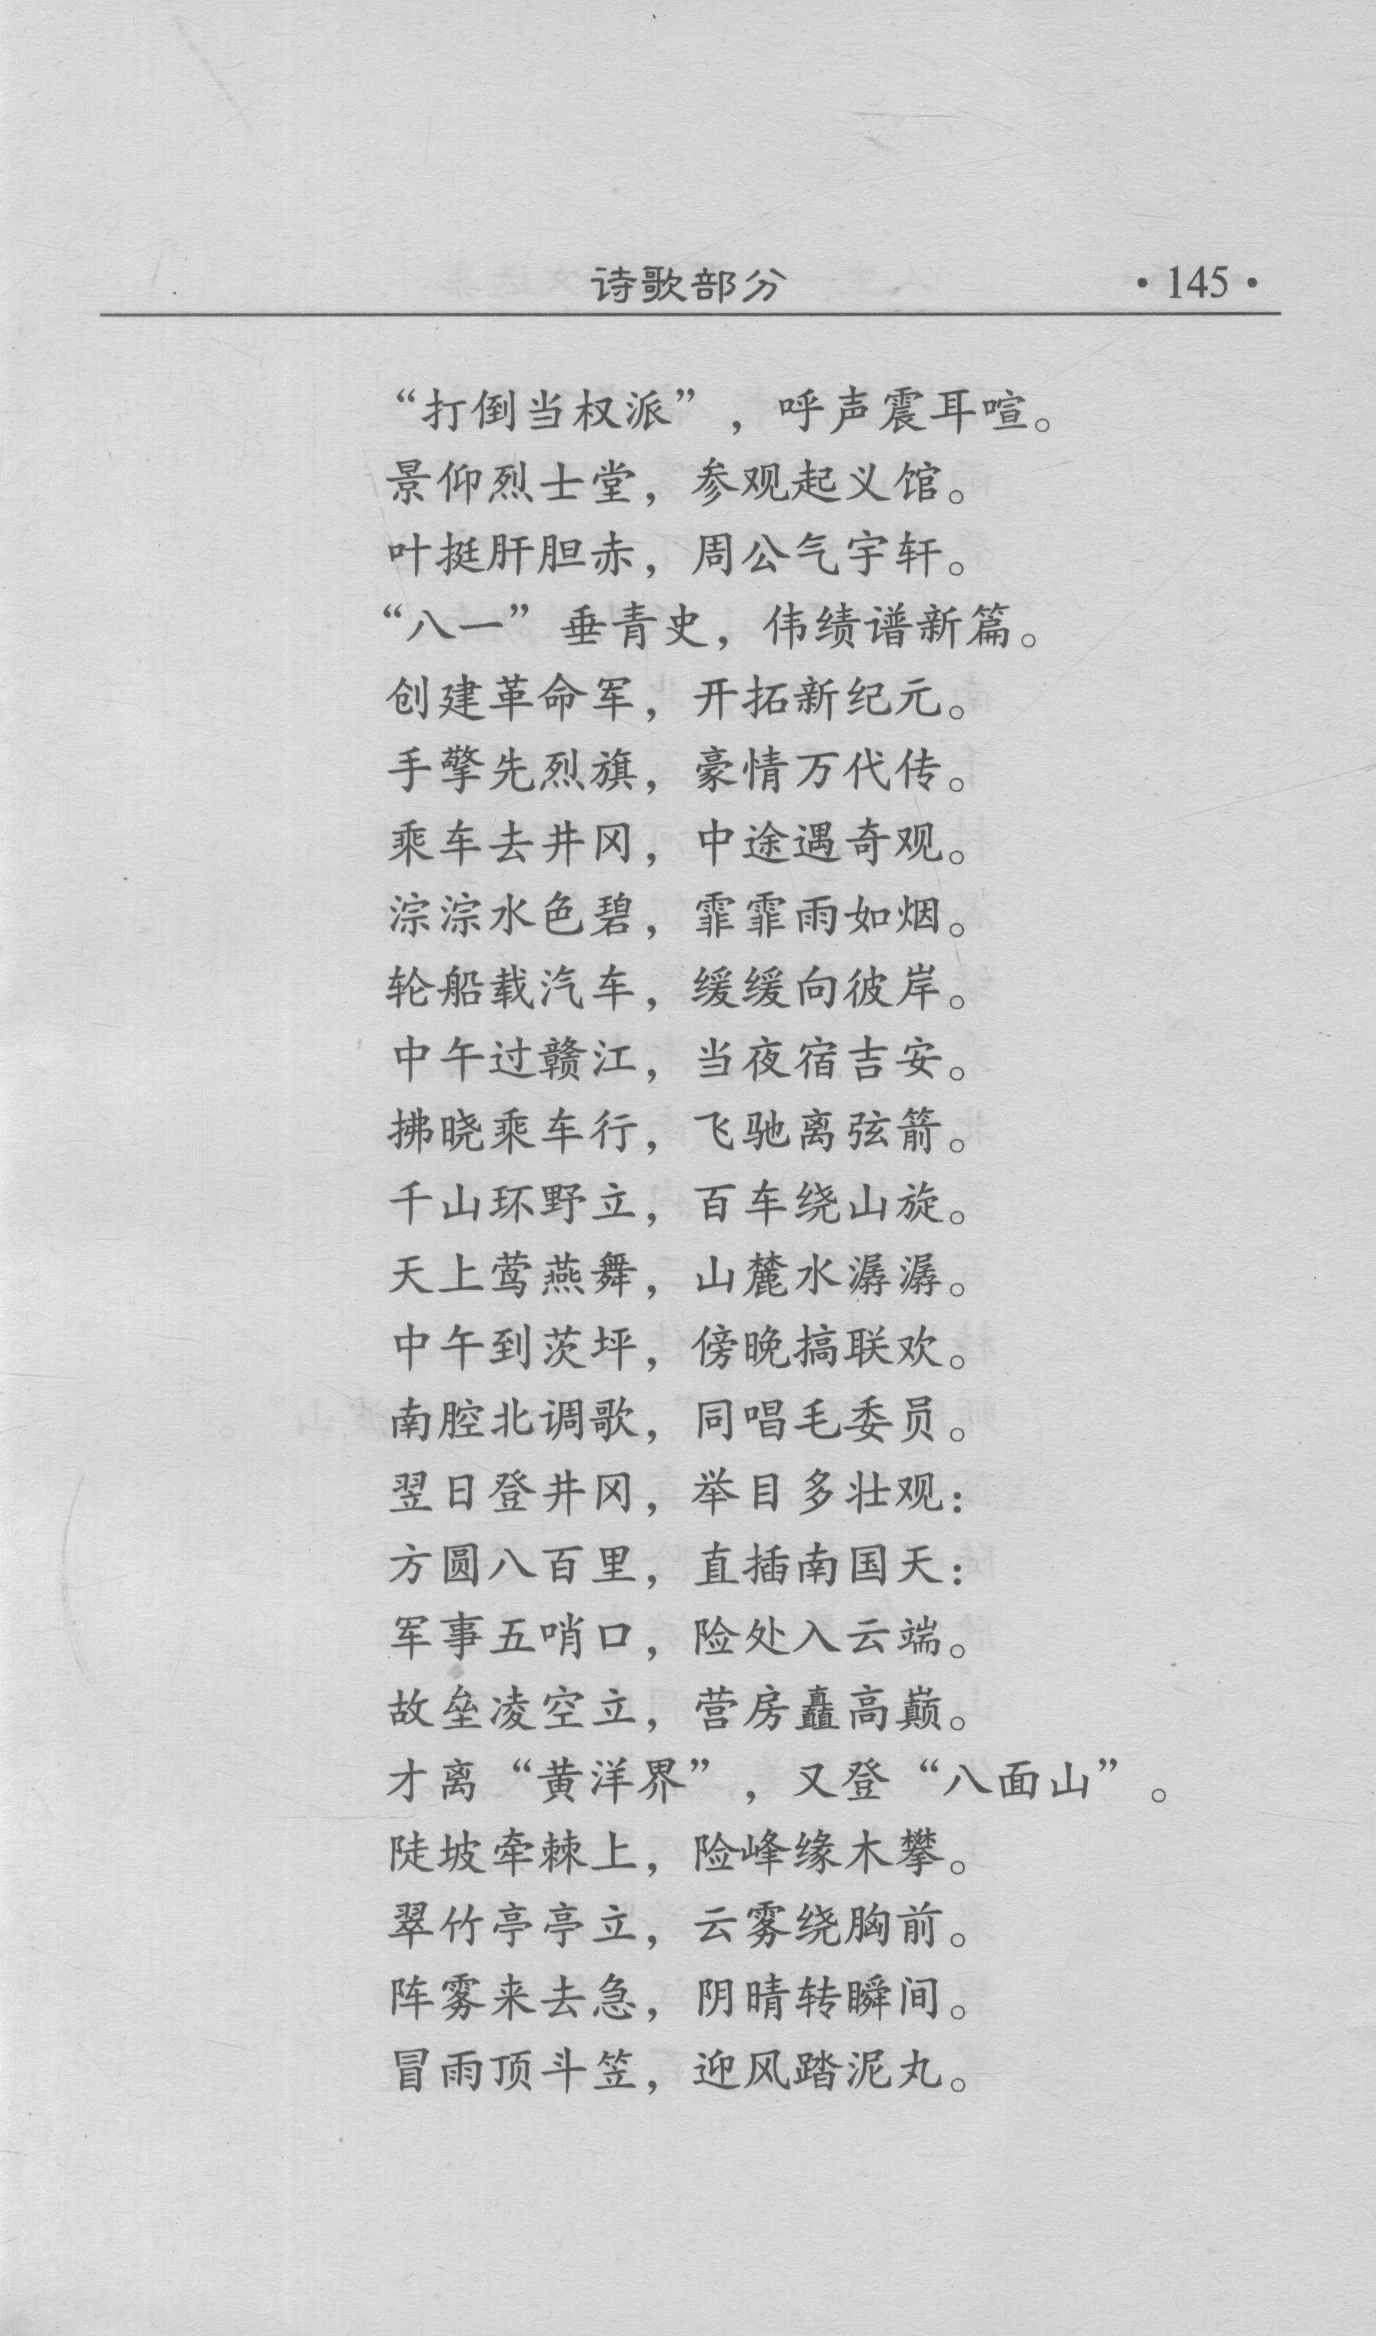 诗歌部分 ·145·
“打倒当权派”，呼声震耳喧。
景仰烈士堂，参观起义馆。
叶挺肝胆赤，周公气宇轩。
“八一”垂青史，伟绩谱新篇。
创建革命军，开拓新纪元。
手擎先烈旗，豪情万代传。
乘车去井冈，中途遇奇观。
淙淙水色碧，霏霏雨如烟。
轮船载汽车，缓缓向彼岸。
中午过赣江，当夜宿吉安。
拂晓乘车行，飞驰离弦箭。
千山环野立，百车绕山旋。
天上莺燕舞，山麓水潺潺。
中午到茨坪，傍晚搞联欢。
南腔北调歌，同唱毛委员。
翌日登井冈，举目多壮观：
方圆八百里，直插南国天：
军事五哨口，险处入云端。
故垒凌空立，营房矗高巅。
才离“黄洋界”，又登“八面山”。
陡坡牵棘上，险峰缘木攀。
翠竹亭亭立，云雾绕胸前。
阵雾来去急，阴晴转瞬间。
冒雨顶斗笠，迎风踏泥丸。